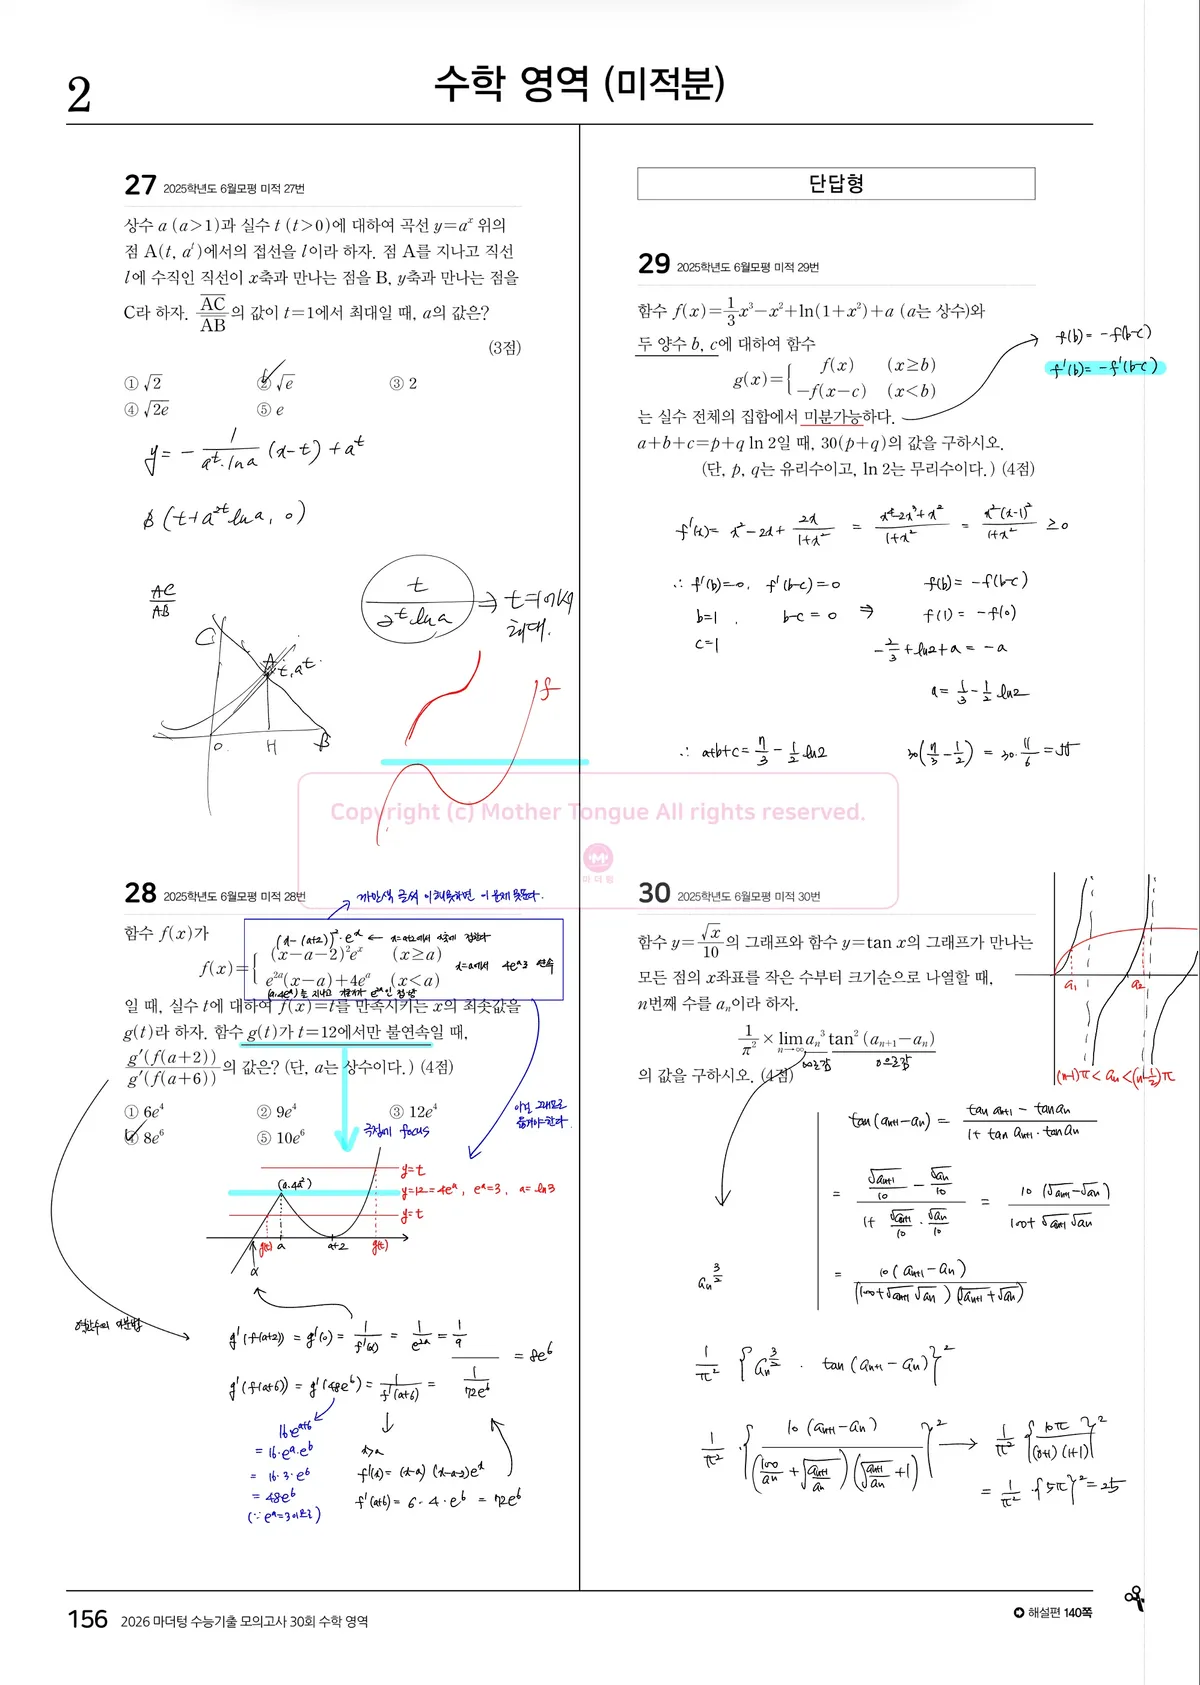 2
수학 영역 (미적분)
27 2025학년도 6월모평 미적 27번
상수 a (a>1)과 실수 t (t>0)에 대하여 곡선 y=a^x 위의
점 A(t, a^t)에서의 접선을 l이라 하자. 점 A를 지나고 직선
l에 수직인 직선이 x축과 만나는 점을 B, y축과 만나는 점을
C라 하자. AC/AB의 값이 t=1에서 최대일 때, a의 값은?
(3점)
① √2 ② √e ③ 2
④ √2e ⑤ e
y = - 1/(a^t·ln a) (x-t) + a^t
B (t+a^2t ln a, 0)
AC/AB
t/(a^2t ln a) → t=1에서
최대.
C
A
t, a^t
O H B
f
28 2025학년도 6월모평 미적 28번
함수 f(x)가
(x-(a+2))^2·e^x ← x=a+2에서 x축에 접한다
f(x)={ (x-a-2)^2e^x (x≥a)
e^2a(x-a)+4e^a (x<a)
x=a에서 4e^a로 연속
일 때, 실수 t에 대하여 f(x)=t를 만족시키는 x의 최솟값을
g(t)라 하자. 함수 g(t)가 t=12에서만 불연속일 때,
g′(f(a+2))/g′(f(a+6))의 값은? (단, a는 상수이다.) (4점)
① 6e^4 ② 9e^4 ③ 12e^4
④ 8e^6 ⑤ 10e^6
극점에 focus
y=t
y=12=4e^a, e^a=3, a=ln3
y=t
g(t) a a+2 g(t)
α
g′(f(a+2)) = g′(0) = 1/f′(α) = 1/e^2a = 1/9
= 8e^6
g′(f(a+6)) = g′(48e^6) = 1/f′(a+6) = 1/72e^6
16·e^a+6
= 16·e^a·e^6
= 16·3·e^6
= 48e^6
(∵ e^a=3이므로)
x>a
f′(x) = (x-a)(x-a-2)e^x
f′(a+6) = 6·4·e^6 = 72e^6
단답형
29 2025학년도 6월모평 미적 29번
함수 f(x)=1/3x^3-x^2+ln(1+x^2)+a (a는 상수)와
두 양수 b, c에 대하여 함수
g(x)={ f(x) (x≥b)
-f(x-c) (x<b)
는 실수 전체의 집합에서 미분가능하다.
a+b+c=p+q ln 2일 때, 30(p+q)의 값을 구하시오.
(단, p, q는 유리수이고, ln 2는 무리수이다.) (4점)
f(b) = -f(b-c)
f′(b) = -f′(b-c)
f′(x) = x^2-2x+ 2x/(1+x^2) = (x^4-2x^3+x^2)/(1+x^2) = x^2(x-1)^2/(1+x^2) ≥0
∴ f′(b)=0, f′(b-c)=0 f(b) = -f(b-c)
b=1, b-c=0 ⇒ f(1) = -f(0)
c=1 -2/3+ln2+a = -a
a = 1/3 - 1/2 ln2
∴ a+b+c = 7/3 - 1/2 ln2 30(7/3 - 1/2) = 30·11/6 = 55
30 2025학년도 6월모평 미적 30번
함수 y=√x/10의 그래프와 함수 y=tan x의 그래프가 만나는
모든 점의 x좌표를 작은 수부터 크기순으로 나열할 때,
n번째 수를 a_n이라 하자.
1/π^2 × lim n→∞ a_n^3 tan^2(a_n+1-a_n)
∞로감 0으로감
의 값을 구하시오. (4점)
a_1 a_2
(n-1)π < a_n < (n-1/2)π
tan(a_n+1-a_n) = (tan a_n+1 - tan a_n)/(1+ tan a_n+1·tan a_n)
= (√a_n+1/10 - √a_n/10)/(1+ √a_n+1/10·√a_n/10) = 10(√a_n+1-√a_n)/(100+√a_n+1√a_n)
a_n^3/2
= 10(a_n+1-a_n)/((100+√a_n+1√a_n)(√a_n+1+√a_n))
1/π^2 {a_n^3/2 · tan(a_n+1-a_n)}^2
1/π^2 · {10(a_n+1-a_n)/((100/a_n+√a_n+1/a_n)(√a_n+1/a_n+1))}^2 → 1/π^2 {10π/((0+1)(1+1))}^2
= 1/π^2 · {5π}^2 = 25
Copyright (c) Mother Tongue All rights reserved.
마더텅
156 2026 마더텅 수능기출 모의고사 30회 수학 영역
해설편 140쪽